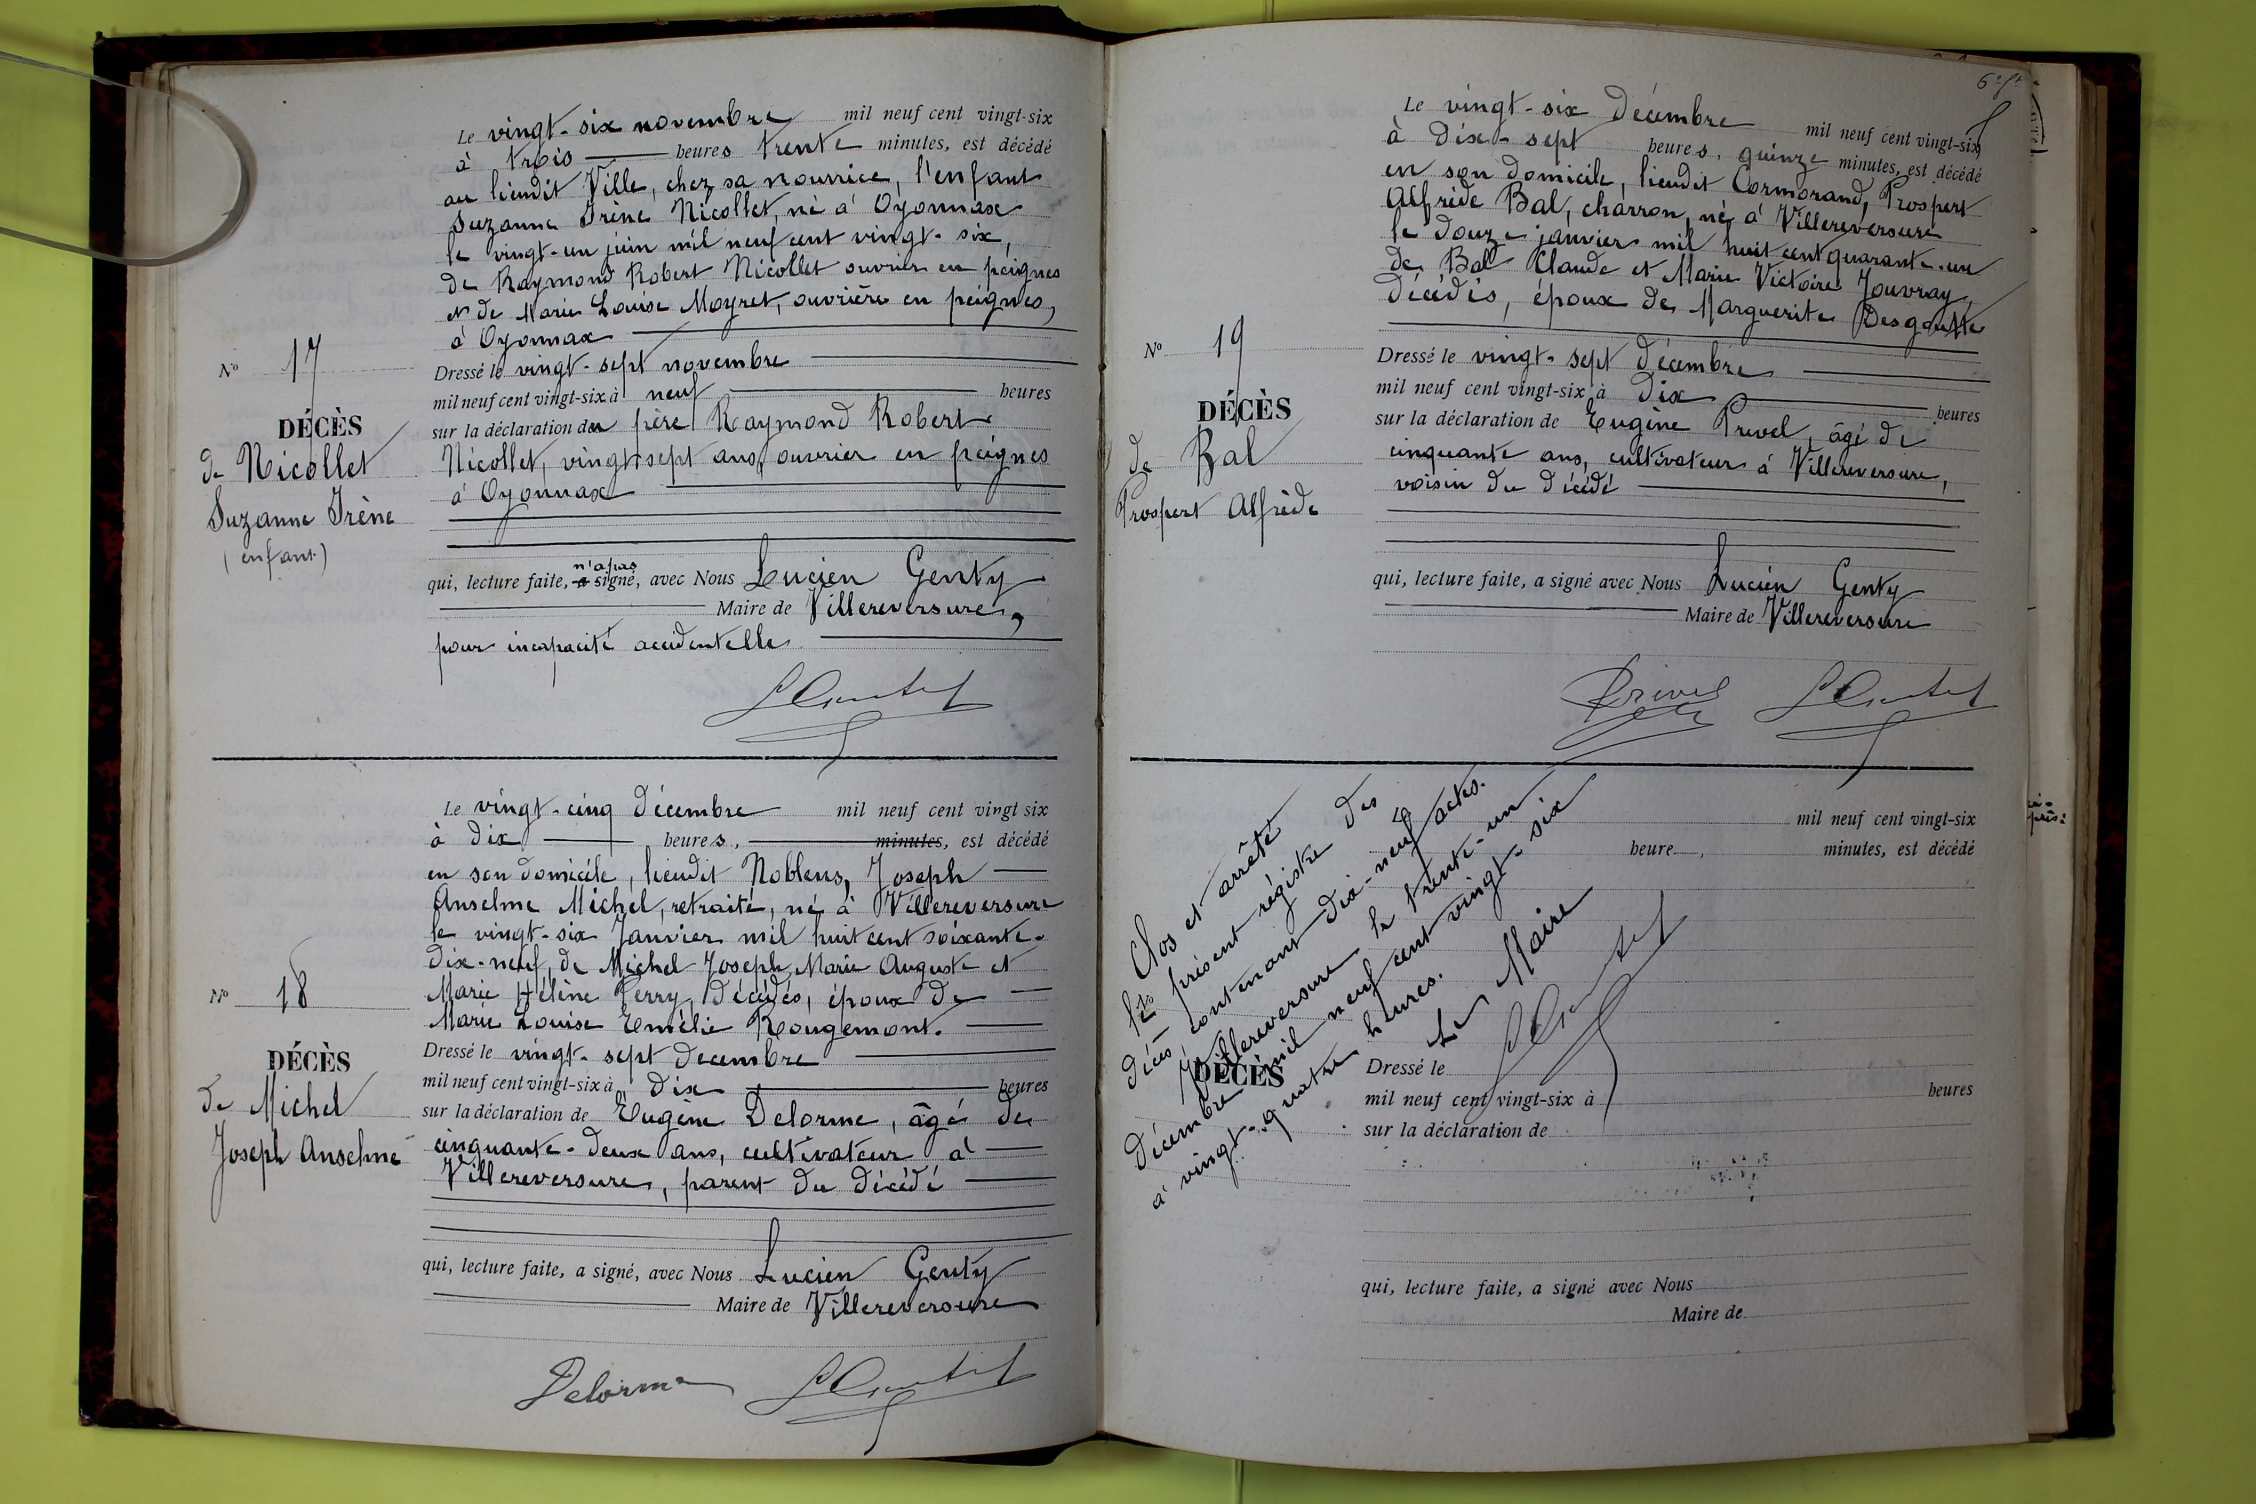 Le vingt-six novembre mil neuf cent vingt-six
à trois heures trente minutes, est décédé
au lieudit Ville, chez sa nourrice, l'enfant
Suzanne Irène Nicollet, né à Oyonnax
le vingt-un juin mil neuf cent vingt-six,
de Raymond Robert Nicollet ouvrier en peignes
et de Marie Louise Moyret, ouvrière en peignes,
à Oyonnax
N° 17
Dressé le vingt-sept novembre
mil neuf cent vingt-six à neuf heures
DÉCÈS
sur la déclaration du père Raymond Robert
de Nicollet
Nicollet, vingt-sept ans, ouvrier en peignes
à Oyonnax
Suzanne Irène
(enfant)
n'a pas
qui, lecture faite, a signé, avec Nous Lucien Genty
Maire de Villereversure,
pour incapacité accidentelle
Le vingt-cinq décembre mil neuf cent vingt six
à dix heures, minutes, est décédé
en son domicile, lieudit Noblens, Joseph
Anselme Michel, retraité, né à Villereversure
le vingt-six Janvier mil huit cent soixante-
dix-neuf, de Michel Joseph Marie Auguste et
N° 18
Marie Hélène Perry, décédés, époux de
Marie Louise Emélie Rougemont.
DÉCÈS
Dressé le vingt-sept decembre
mil neuf cent vingt-six à dix heures
de Michel
sur la déclaration de Eugène Delorme, âgé de
Joseph Anselme
cinquante-deux ans, cultivateur à
Villereversure, parent du décédé
qui, lecture faite, a signé, avec Nous Lucien Genty
Maire de Villereversure
Delorme
Le vingt-six décembre mil neuf cent vingt-six
à dix-sept heures, quinze minutes, est décédé
en son domicile, lieudit Cormorand, Prospert
Alfrède Bal, charron, né à Villereversure
le douze janvier mil huit cent quarante-un
de Bal Claude et Marie Victoire Jouvray,
décédés, époux de Marguerite Desgoutte
N° 19
Dressé le vingt-sept décembre
mil neuf cent vingt-six à dix heures
DÉCÈS
sur la déclaration de Eugène Privel, âgé de
de Bal
cinquante ans, cultivateur à Villereversure,
Prospert Alfrède
voisin du décédé
qui, lecture faite, a signé avec Nous Lucien Genty
Maire de Villereversure
Privel
Clos et arrêté
le présent régistre des
décès, contenant dix-neuf actes.
Villereversure le trente-un
décembre mil neuf cent vingt-six
à vingt-quatre heures.
Le Maire
mil neuf cent vingt-six
heure, minutes, est décédé
N°
DÉCÈS
Dressé le
mil neuf cent vingt-six à heures
sur la déclaration de
qui, lecture faite, a signé avec Nous
Maire de